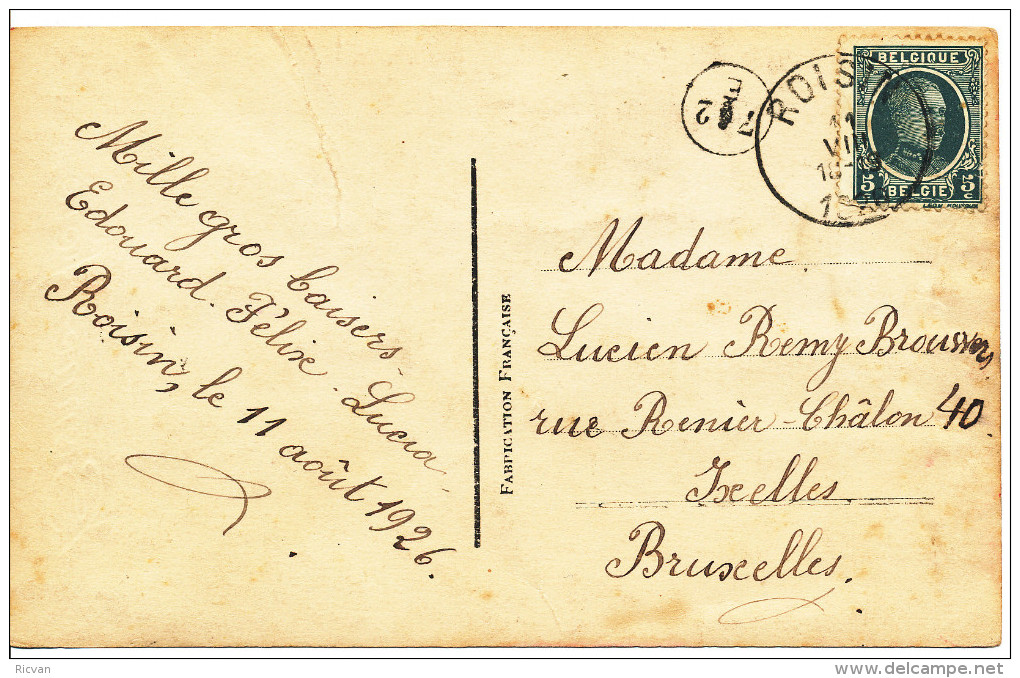 Mille gros baisers
Edouard. Félix. Lucia.
Roisin, le 11 août 1926.
FABRICATION FRANÇAISE
BELGIQUE
5 5
BELGIE
ROISIN
11
VIII
7
2
Madame
Lucien Remy Brouwers
rue Renier-Châlon 40
Ixelles
Bruxelles.
Ricvan
delcampe.net